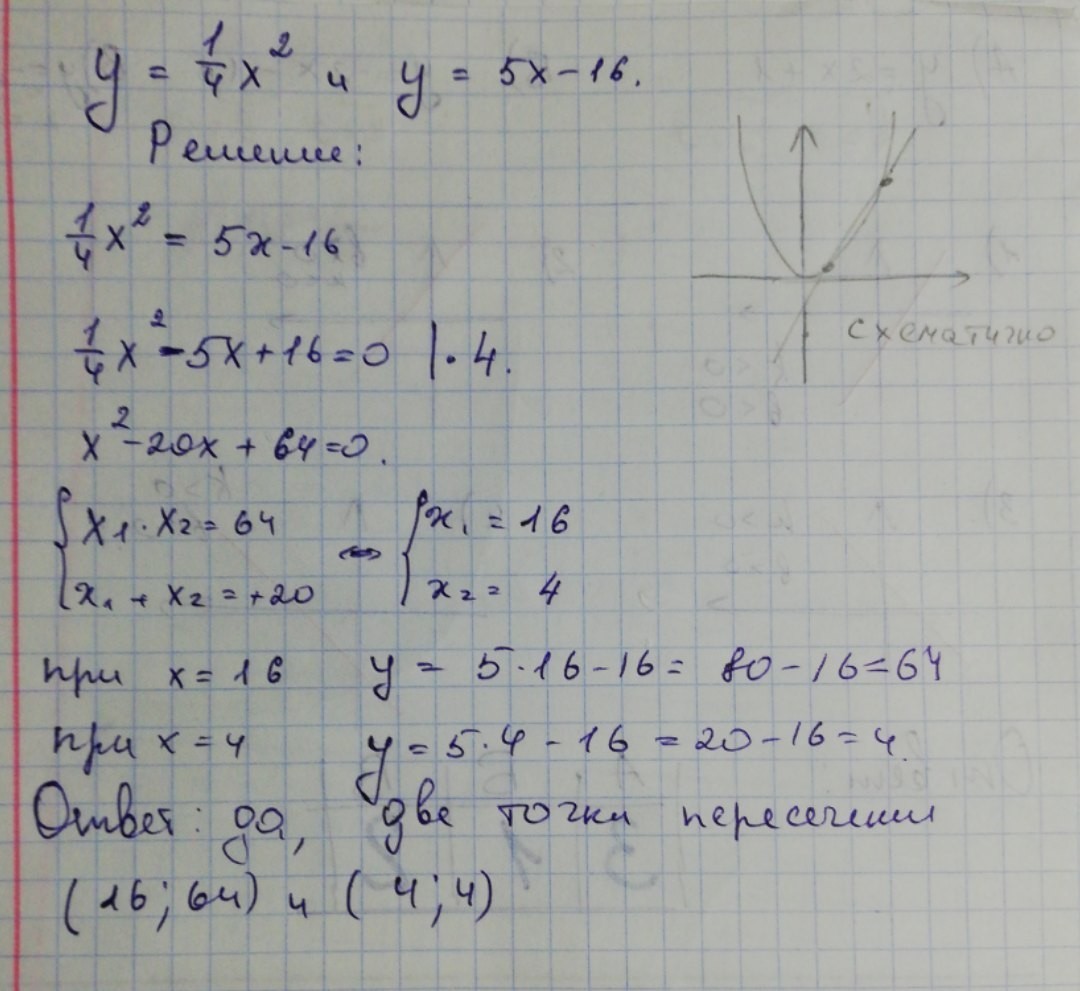 y = 1/4 x² и y = 5x - 16.
Решение:
1/4 x² = 5x - 16
1/4 x² - 5x + 16 = 0 | · 4.
x² - 20x + 64 = 0.
{ x₁ · x₂ = 64
x₁ + x₂ = +20
⇔ { x₁ = 16
x₂ = 4
при x = 16 y = 5·16 - 16 = 80 - 16 = 64
при x = 4 y = 5·4 - 16 = 20 - 16 = 4.
Ответ: да, две точки пересечения
(16; 64) и (4; 4)
схематично